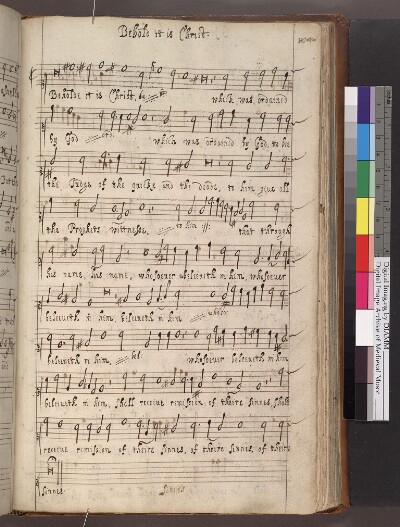 Behold it is Christ.
Beholde it is Christ, &c which was, ordained
by God, ord: which was ordained by God, to be
the Judge of the quicke and the deade, to him giue all
the Prophets wittnesse, to him :||: that through
his name, his name, whosoeuer beleeueth in him, whosoeuer
beleeueth in him, beleeueth in him, whoso:
beleeueth in him, bel: whosoeuer beleeueth in him
beleeueth in him, shall receiue remission of theire sinnes, shall
receiue remission of theire sinnes, of theire sinnes, of theire
sinnes. sinnes
Digital Imaging by DIAMM
Digital Image Archive of Medieval Music